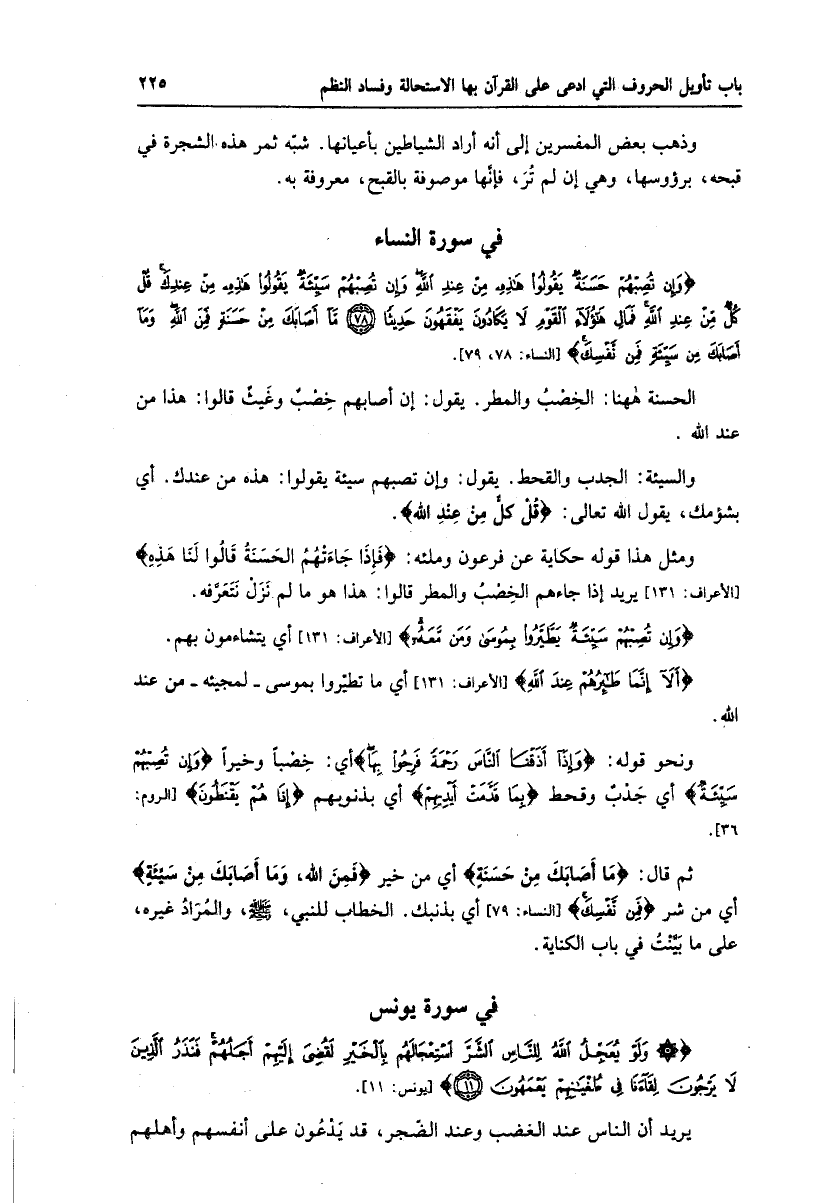 باب تأويل الحروف التي ادعى على القرآن بها الاستحالة وفساد النظم ٢٢٥
وذهب بعض المفسرين إلى أنه أراد الشياطين بأعيانها. شبّه ثمر هذه الشجرة في
قبحه، برؤوسها، وهي إن لم تُرَ، فإنَّها موصوفة بالقبح، معروفة به.
في سورة النساء
﴿وَإِن تُصِبْهُمْ حَسَنَةٌ يَقُولُوا۟ هَٰذِهِۦ مِنْ عِندِ ٱللَّهِۖ وَإِن تُصِبْهُمْ سَيِّئَةٌ يَقُولُوا۟ هَٰذِهِۦ مِنْ عِندِكَۚ قُلْ
كُلٌّ مِّنْ عِندِ ٱللَّهِۖ فَمَالِ هَٰٓؤُلَآءِ ٱلْقَوْمِ لَا يَكَادُونَ يَفْقَهُونَ حَدِيثًا ﴿٧٨﴾ مَّآ أَصَابَكَ مِنْ حَسَنَةٍ فَمِنَ ٱللَّهِۖ وَمَآ
أَصَابَكَ مِن سَيِّئَةٍ فَمِن نَّفْسِكَۚ﴾ [النساء: ٧٨، ٧٩].
الحسنة هٰهنا: الخِصْبُ والمطر. يقول: إن أصابهم خِصْبٌ وغَيثٌ قالوا: هذا من
عند الله .
والسيئة: الجدب والقحط. يقول: وإن تصبهم سيئة يقولوا: هذه من عندك. أي
بشؤمك، يقول الله تعالى: ﴿قُلْ كلٌّ مِنْ عِنْدِ الله﴾.
ومثل هذا قوله حكاية عن فرعون وملئه: ﴿فَإِذَا جَاءَتْهُمُ الحَسَنَةُ قَالُوا لَنَا هَذِهِ﴾
[الأعراف: ١٣١] يريد إذا جاءهم الخِصْبُ والمطر قالوا: هذا هو ما لم نَزَلْ نَتَعَرَّفه.
﴿وَإِن تُصِبْهُمْ سَيِّئَةٌ يَطَّيَّرُوا۟ بِمُوسَىٰ وَمَن مَّعَهُۥٓ﴾ [الأعراف: ١٣١] أي يتشاءمون بهم.
﴿أَلَآ إِنَّمَا طَٰٓئِرُهُمْ عِندَ ٱللَّهِ﴾ [الأعراف: ١٣١] أي ما تطيّروا بموسى ـ لمجيئه ـ من عند
الله.
ونحو قوله: ﴿وَإِذَآ أَذَقْنَا ٱلنَّاسَ رَحْمَةً فَرِحُوا۟ بِهَاۖ﴾أي: خِصْباً وخيراً ﴿وَإِن تُصِبْهُمْ
سَيِّئَةٌۢ﴾ أي جَدْبٌ وقحط ﴿بِمَا قَدَّمَتْ أَيْدِيهِمْ﴾ أي بذنوبهم ﴿إِذَا هُمْ يَقْنَطُونَ﴾ [الروم:
٣٦].
ثم قال: ﴿مَا أَصَابَكَ مِنْ حَسَنَةٍ﴾ أي من خير ﴿فَمِنَ الله، وَمَا أَصَابَكَ مِنْ سَيِّئَةٍ﴾
أي من شر ﴿فَمِن نَّفْسِكَۚ﴾ [النساء: ٧٩] أي بذنبك. الخطاب للنبي، ﷺ، والمُرَادُ غيره،
على ما بَيَّنْتُ في باب الكناية.
في سورة يونس
﴿۞ وَلَوْ يُعَجِّلُ ٱللَّهُ لِلنَّاسِ ٱلشَّرَّ ٱسْتِعْجَالَهُم بِٱلْخَيْرِ لَقُضِىَ إِلَيْهِمْ أَجَلُهُمْۖ فَنَذَرُ ٱلَّذِينَ
لَا يَرْجُونَ لِقَآءَنَا فِى طُغْيَٰنِهِمْ يَعْمَهُونَ ﴿١١﴾﴾ [يونس: ١١].
يريد أن الناس عند الغضب وعند الضّجر، قد يَدْعُون على أنفسهم وأهلهم